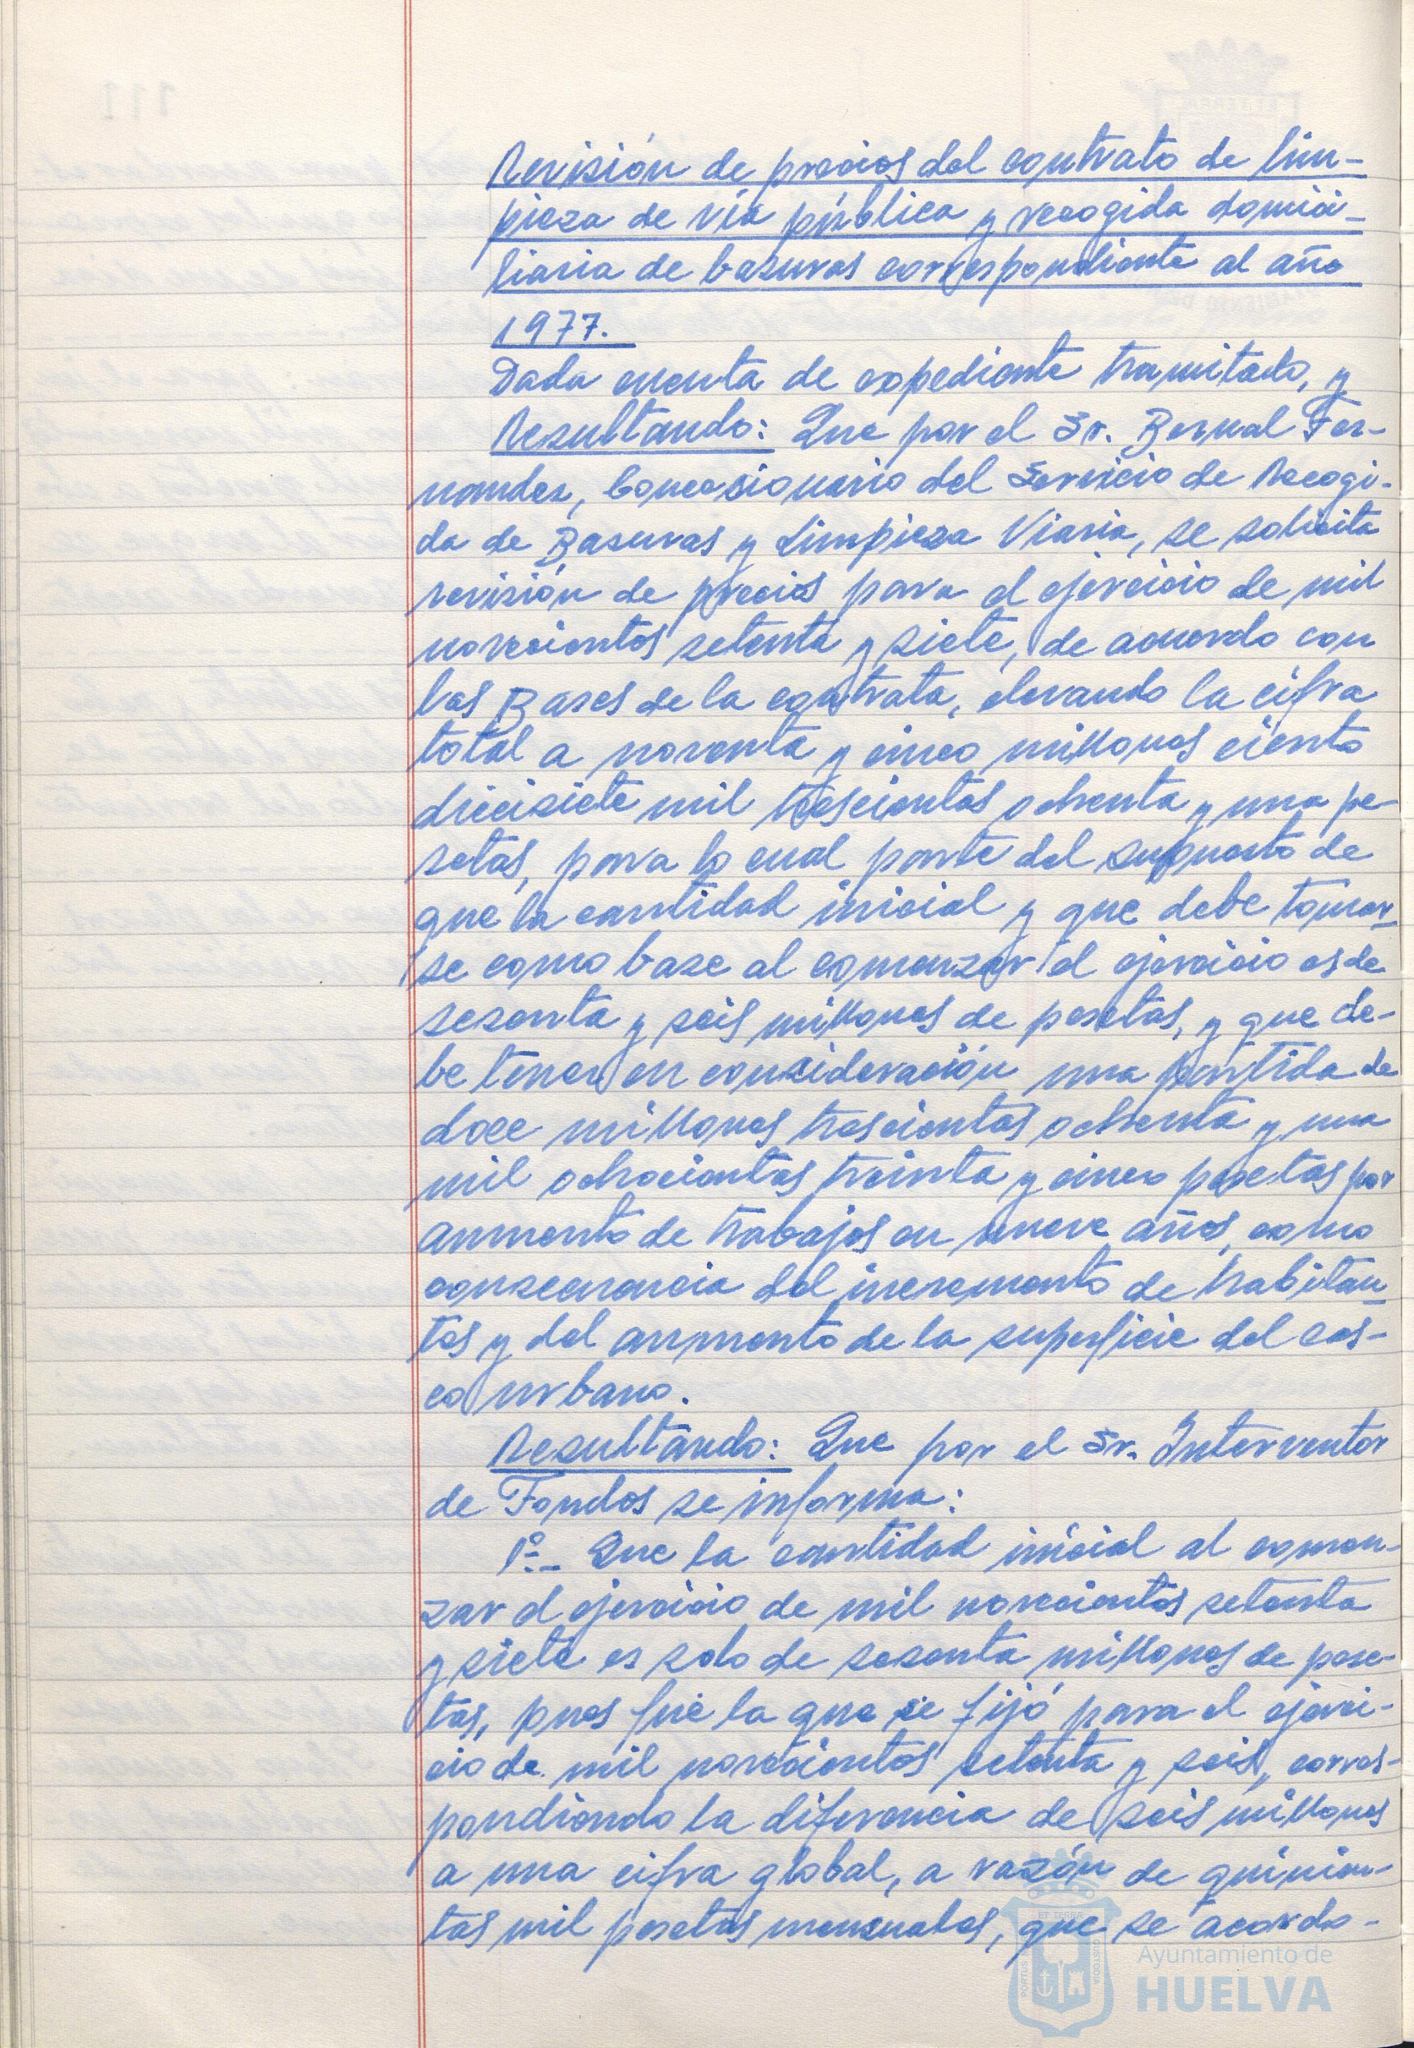 Revisión de precios del contrato de lim-
pieza de vía pública y recogida domici-
liaria de basuras correspondiente al año
1977.
Dada cuenta de expediente tramitado, y
Resultando: Que por el Sr. Bernal Fer-
nandez, Concesionario del Servicio de Recogi-
da de Basuras y Limpieza Viaria, se solicita
revisión de precios para el ejercicio de mil
novecientos setenta y siete, de acuerdo con
las Bases de la contrata, elevando la cifra
total a noventa y cinco millones ciento
diecisiete mil trescientas ochenta y una pe-
setas, para lo cual parte del supuesto de
que la cantidad inicial y que debe tomar-
se como base al comenzar el ejercicio es de
sesenta y seis millones de pesetas, y que de-
be tener en consideración una partida de
doce millones trescientas ochenta y una
mil ochocientas treinta y cinco pesetas por
aumento de trabajos en nueve años, como
consecuencia del incremento de habitan-
tes y del aumento de la superficie del cas-
co urbano.
Resultando: Que por el Sr. Interventor
de Fondos se informa:
1º.- Que la cantidad inicial al comen-
zar el ejercicio de mil novecientos setenta
y siete es solo de sesenta millones de pese-
tas, pues fué la que se fijó para el ejerci-
cio de mil novecientos setenta y seis, corres-
pondiendo la diferencia de seis millones
a una cifra global, a razón de quinien-
tas mil pesetas mensuales, que se acordo-
Ayuntamiento de
HUELVA